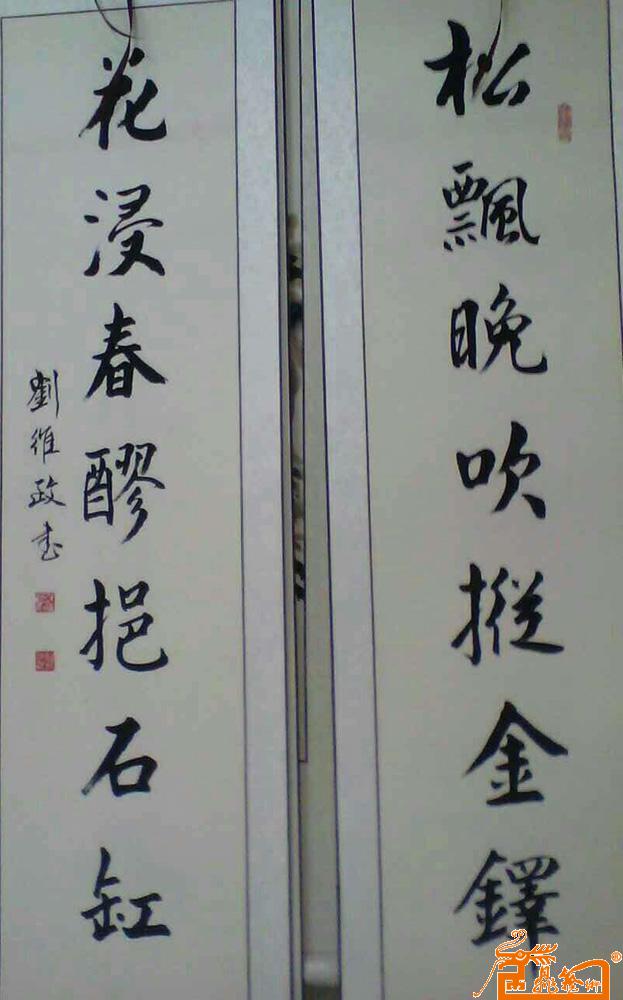 松飄晚吹摐金鐸
花浸春醪挹石缸
劉維政书